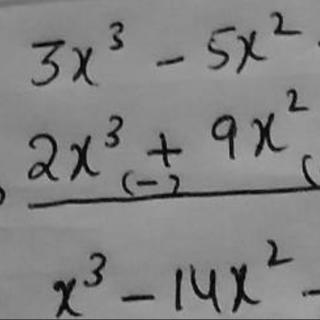 3x³ - 5x²
2x³ + 9x²
(-) (
x³ - 14x² -